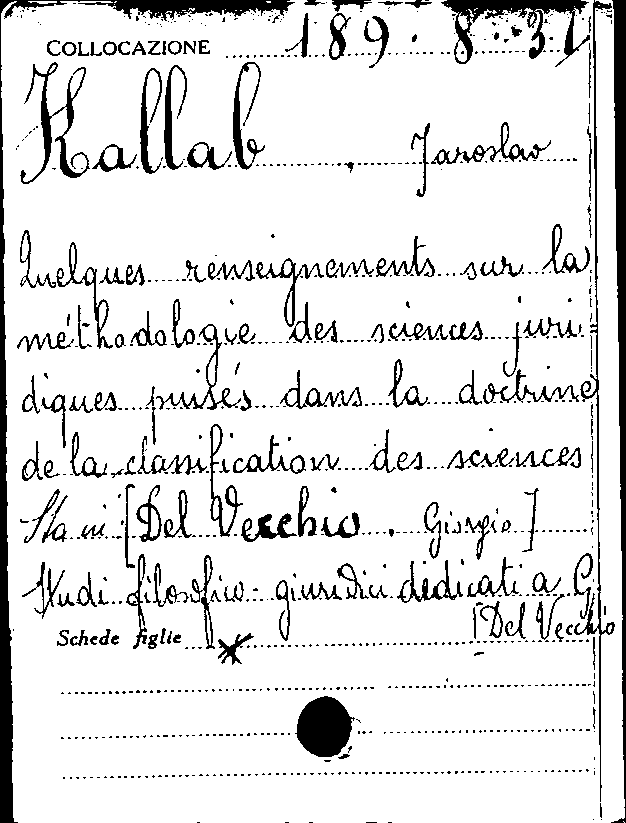 COLLOCAZIONE 189. 8. 31
Kallab, Jaroslav
Quelques renseignements sur la
méthodologie des sciences juri=
diques puisés dans la doctrine
de la classification des sciences
Sta in [Del Vecchio, Giorgio]
Studi filosofico-giuridici dedicati a G.
[Del Vecchio
Schede figlie